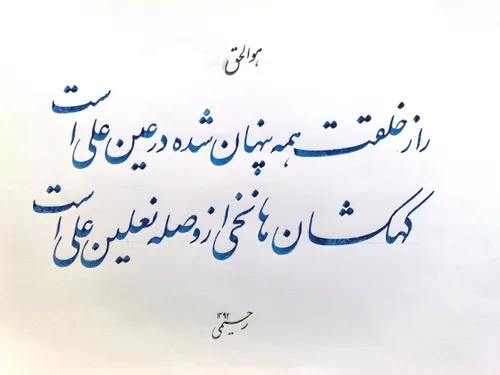 هوالحق
راز خلقت همه پنهان شده در عین علی است
کهکشان ها نخی از وصله نعلین علی است
رحیمی ۱۳۹۲